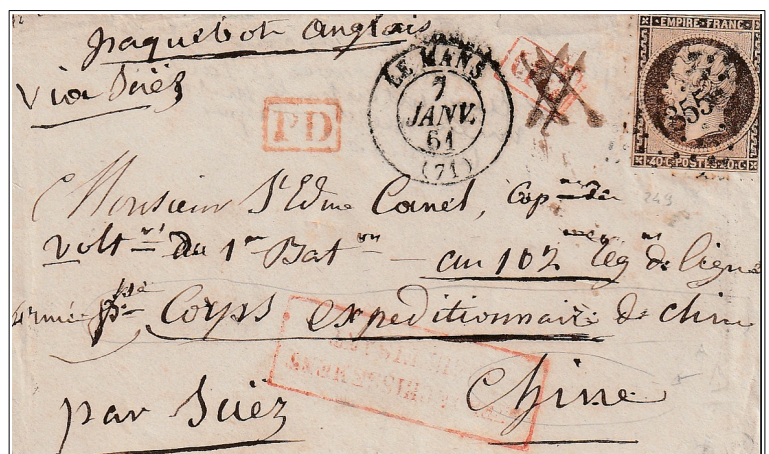 paquebot anglais
via Suez
LE MANS
7
JANV.
61
(71)
EMPIRE FRANC
355
40 C POSTES 40 C
PD
Monsieur St Edme Canel, Cap
volt du 1er Bat on - au 102 me Reg nt de ligne
armée Corps expeditionnaire de chine
par Suez
Chine
249